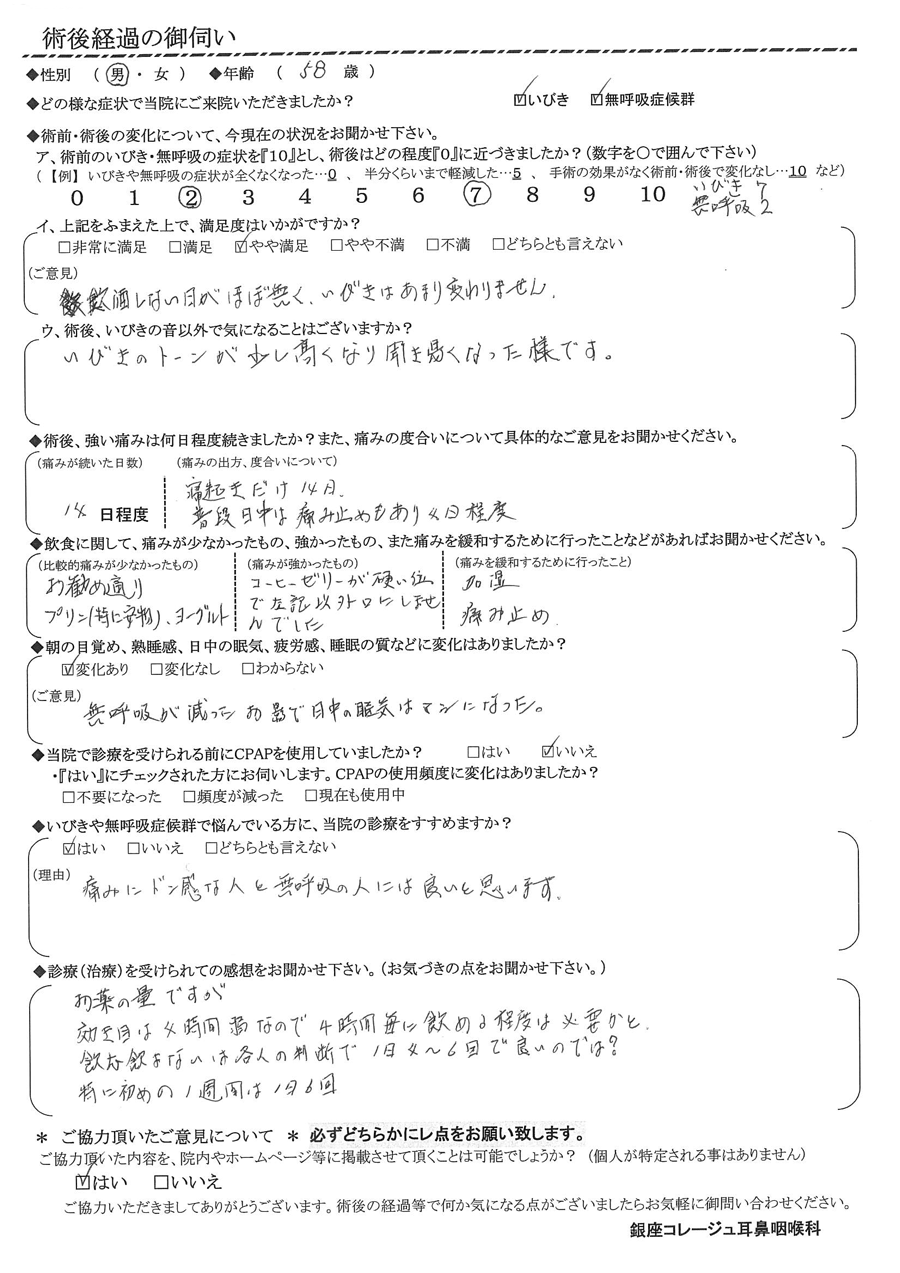 術後経過の御伺い
◆性別 ( 男 ・ 女 ) ◆年齢 ( 58 歳 )
◆どの様な症状で当院にご来院いただきましたか? ☑いびき ☑無呼吸症候群
◆術前・術後の変化について、今現在の状況をお聞かせ下さい。
ア、術前のいびき・無呼吸の症状を『10』とし、術後はどの程度『0』に近づきましたか?(数字を〇で囲んで下さい)
(【例】いびきや無呼吸の症状が全くなくなった…0 、 半分くらいまで軽減した…5 、 手術の効果がなく術前・術後で変化なし…10 など)
0 1 2 3 4 5 6 7 8 9 10 いびき 7
無呼吸 2
イ、上記をふまえた上で、満足度はいかがですか?
□非常に満足 □満足 ☑やや満足 □やや不満 □不満 □どちらとも言えない
(ご意見)
飲酒しない日がほぼ無く、いびきはあまり変わりません。
ウ、術後、いびきの音以外で気になることはございますか?
いびきのトーンが少し高くなり聞き易くなった様です。
◆術後、強い痛みは何日程度続きましたか?また、痛みの度合いについて具体的なご意見をお聞かせください。
(痛みが続いた日数) (痛みの出方、度合いについて)
14 日程度
起きだけ14日.
普段日中は痛み止めもあり4日程度
◆飲食に関して、痛みが少なかったもの、強かったもの、また痛みを緩和するために行ったことなどがあればお聞かせください。
(比較的痛みが少なかったもの) (痛みが強かったもの) (痛みを緩和するために行ったこと)
お勧め通り
プリン(特に安物)、ヨーグルト
コーヒーゼリーが硬い位
で左記以外口にしませ
んでした
加湿
痛み止め
◆朝の目覚め、熟睡感、日中の眠気、疲労感、睡眠の質などに変化はありましたか?
☑変化あり □変化なし □わからない
(ご意見)
無呼吸が減ったお蔭で日中の眠気はマシになった。
◆当院で診療を受けられる前にCPAPを使用していましたか? □はい ☑いいえ
・『はい』にチェックされた方にお伺いします。CPAPの使用頻度に変化はありましたか?
□不要になった □頻度が減った □現在も使用中
◆いびきや無呼吸症候群で悩んでいる方に、当院の診療をすすめますか?
☑はい □いいえ □どちらとも言えない
(理由)
痛みにドン感な人と無呼吸の人には良いと思います。
◆診療(治療)を受けられての感想をお聞かせ下さい。(お気づきの点をお聞かせ下さい。)
お薬の量ですが
効き目は4時間なので4時間毎に飲める程度は必要かと.
飲む飲まないは各人の判断で1日4〜6回で良いのでは?
特に初めの1週間は1日6回
* ご協力頂いたご意見について * 必ずどちらかにレ点をお願い致します。
ご協力頂いた内容を、院内やホームページ等に掲載させて頂くことは可能でしょうか? (個人が特定される事はありません)
☑はい □いいえ
ご協力いただきましてありがとうございます。術後の経過等で何か気になる点がございましたらお気軽に御問い合わせください。
銀座コレージュ耳鼻咽喉科